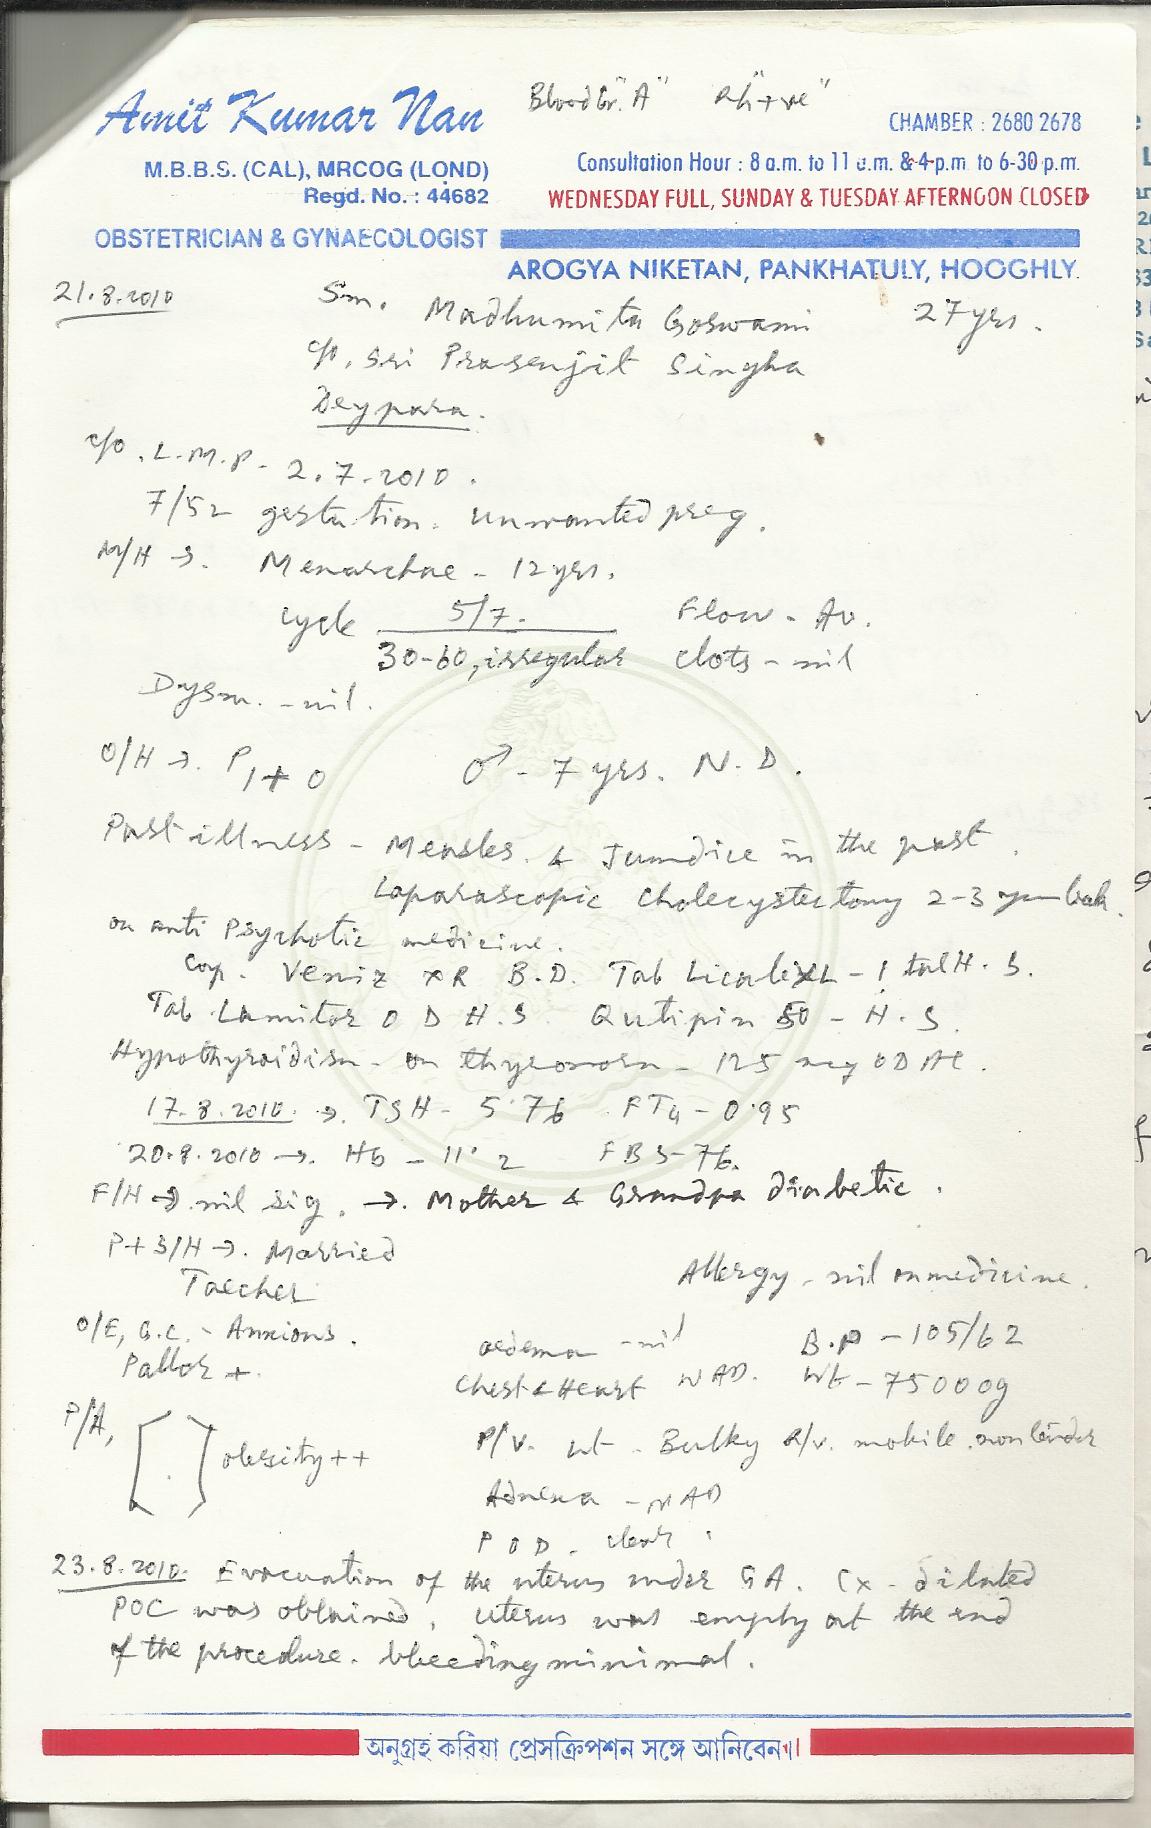 Amit Kumar Nan
M.B.B.S. (CAL), MRCOG (LOND)
Regd. No. : 44682
OBSTETRICIAN & GYNAECOLOGIST
Blood Gr. "A" Rh "+ve"
CHAMBER : 2680 2678
Consultation Hour : 8 a.m. to 11 a.m. & 4 p.m. to 6-30 p.m.
WEDNESDAY FULL, SUNDAY & TUESDAY AFTERNOON CLOSED
AROGYA NIKETAN, PANKHATULY, HOOGHLY.
21.8.2010 Sm. Madhumita Goswami 27 yrs.
c/o. Sri Prasenjit Singha
Deypara.
c/o. L.M.P. - 2.7.2010.
7/52 gestation. unwanted preg.
M/H →. Menarchae - 12 yrs.
cycle 5/7. Flow - Av.
30-60, irregular clots - nil
Dysm. - nil.
O/H →. P1+0 ♂ - 7 yrs. N.D.
Past illness - Measles. & Jaundice in the past.
Laparascopic Cholecystectomy 2-3 back.
on anti Psychotic medicine.
Cap. Veniz XR B.D. Tab Licab XL - 1 tab H.S.
Tab Lamitor O D H.S Qutipin 50 - H.S.
Hypothyroidism - on thyronorm - 125 mcg OD AC.
17.8.2010. →. TSH - 5.76 FT4 - 0.95
20.8.2010 →. Hb - 11.2 FBS - 76.
F/H → nil sig. →. Mother & Grandpa diabetic.
P+S/H →. Married
Taecher
Allergy - nil on medicine.
O/E, G.C. - Anxious. oedema - nil B.P - 105/62
Pallor +. Chest & Heart NAD. Wt - 75000g
P/A, [ . ] obesity ++ P/V. ut - Bulky R/v. mobile. non tender
Adnexa - NAD
P O D - clear.
23.8.2010. Evacuation of the uterus under GA. Cx - dilated
POC was obtained. uterus was empty at the end
of the procedure. bleeding minimal.
অনুগ্রহ করিয়া প্রেসক্রিপশন সঙ্গে আনিবেন।।